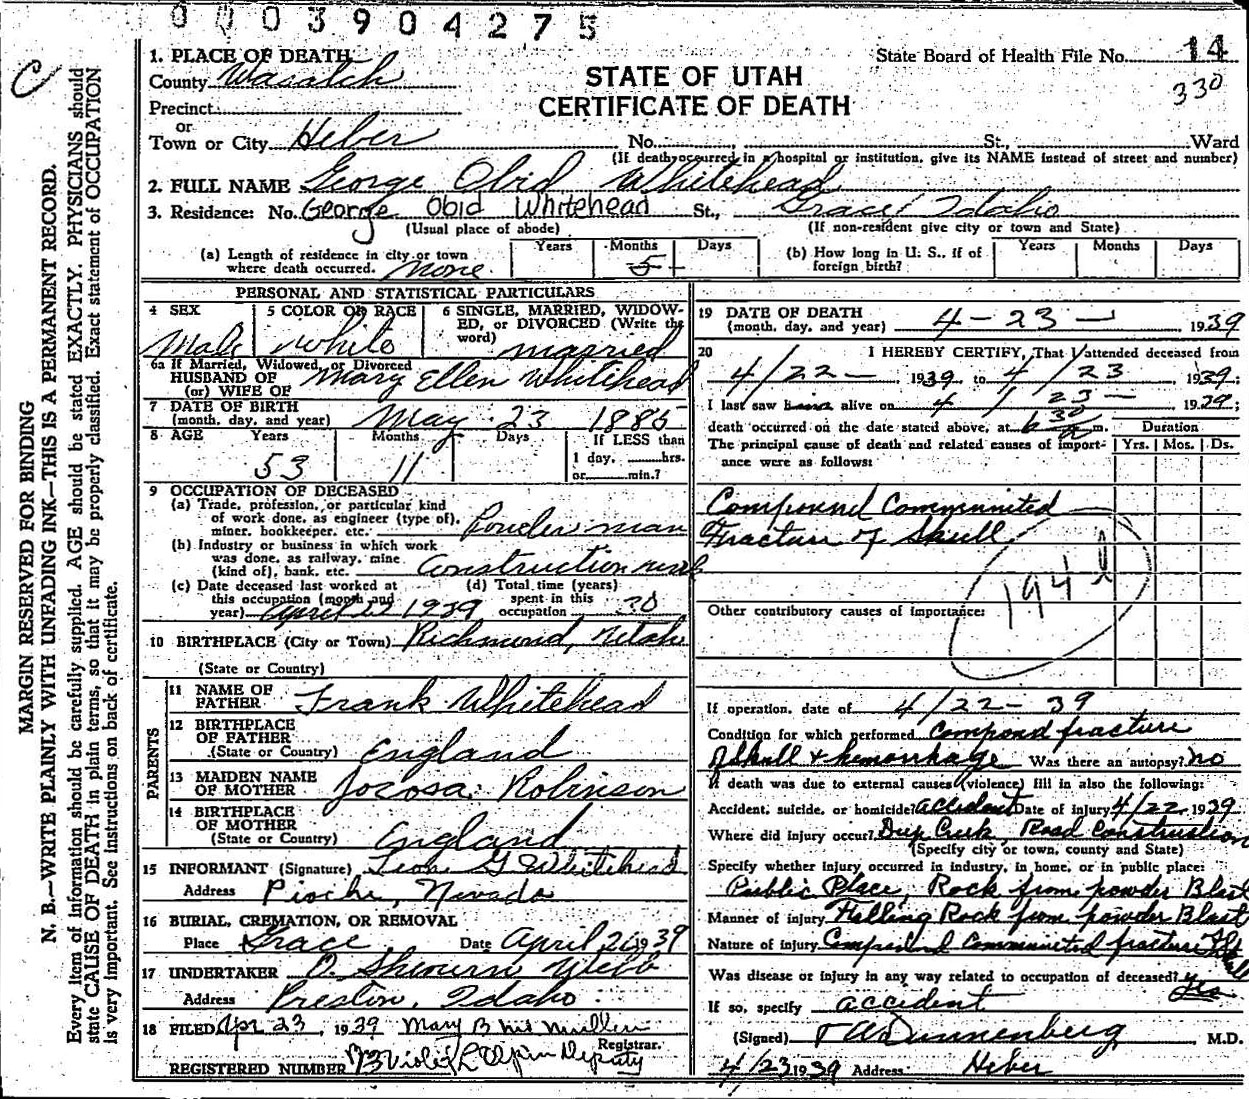 0003904275
C
MARGIN RESERVED FOR BINDING
N. B.—WRITE PLAINLY WITH UNFADING INK—THIS IS A PERMANENT RECORD.
Every item of information should be carefully supplied. AGE should be stated EXACTLY. PHYSICIANS should
state CAUSE OF DEATH in plain terms, so that it may be properly classified. Exact statement of OCCUPATION
is very important. See instructions on back of certificate.
State Board of Health File No. 14
330
STATE OF UTAH
CERTIFICATE OF DEATH
1. PLACE OF DEATH
County Wasatch
Precinct
or
Town or City Heber No. St., Ward
(If death occurred in a hospital or institution, give its NAME instead of street and number)
2. FULL NAME George Obid Whitehead
3. Residence: No. George Obid Whitehead St., Grace, Idaho
(Usual place of abode) (If non-resident give city or town and State)
(a) Length of residence in city or town where death occurred. None Years Months 5 Days
(b) How long in U. S., if of foreign birth? Years Months Days
PERSONAL AND STATISTICAL PARTICULARS
4 SEX Male
5 COLOR OR RACE white
6 SINGLE, MARRIED, WIDOWED, or DIVORCED (Write the word) married
6a If Married, Widowed, or Divorced
HUSBAND OF Mary Ellen Whitehead
(or) WIFE OF
7 DATE OF BIRTH
(month, day, and year) May 23 1885
8 AGE Years 53 Months 11 Days If LESS than 1 day, hrs. or min.?
9 OCCUPATION OF DECEASED
(a) Trade, profession, or particular kind of work done, as engineer (type of), miner, bookkeeper, etc. Powder man
(b) Industry or business in which work was done, as railway, mine (kind of), bank, etc. Construction work
(c) Date deceased last worked at this occupation (month and year) April 22 1939
(d) Total time (years) spent in this occupation 20
10 BIRTHPLACE (City or Town) Richmond, Utah
(State or Country)
PARENTS
11 NAME OF FATHER Frank Whitehead
12 BIRTHPLACE OF FATHER
(State or Country) England
13 MAIDEN NAME OF MOTHER Jocosa Robinson
14 BIRTHPLACE OF MOTHER
(State or Country) England
15 INFORMANT (Signature) Leon G Whitehead
Address Pioche, Nevada
16 BURIAL, CREMATION, OR REMOVAL
Place Grace Date April 26 1939
17 UNDERTAKER O. Webb
Address Preston, Idaho
18 FILED Apr 23, 1939 Mary B
Registrar.
REGISTERED NUMBER Violet Deputy
19 DATE OF DEATH
(month, day, and year) 4-23- 1939
20 I HEREBY CERTIFY, That I attended deceased from
4/22- 1939 to 4/23, 1939;
I last saw him alive on 4/23- 1939;
death occurred on the date stated above, at 6 30 a m.
The principal cause of death and related causes of importance were as follows:
Duration
Yrs. Mos. Ds.
Compound Comminuted
Fracture of Skull
194
Other contributory causes of importance:
If operation, date of 4/22-39
Condition for which performed Compond fracture
of Skull & hemorrhage Was there an autopsy? no
If death was due to external causes (violence) fill in also the following:
Accident, suicide, or homicide? accident Date of injury 4/22 1939
Where did injury occur? Deep Creek, Road Construction
(Specify city or town, county and State)
Specify whether injury occurred in industry, in home, or in public place:
Public Place, Rock from powder Blast
Manner of injury Falling Rock from powder Blast
Nature of injury Compound Comminuted fracture of Skull
Was disease or injury in any way related to occupation of deceased? Yes
If so, specify accident
(Signed) Dannenberg M.D.
4/23 1939 Address Heber